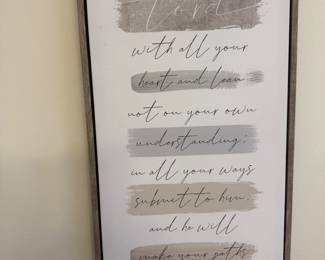 Lord
with all your
heart and lean
not on your own
understanding;
in all your ways
submit to him,
and he will
make your paths